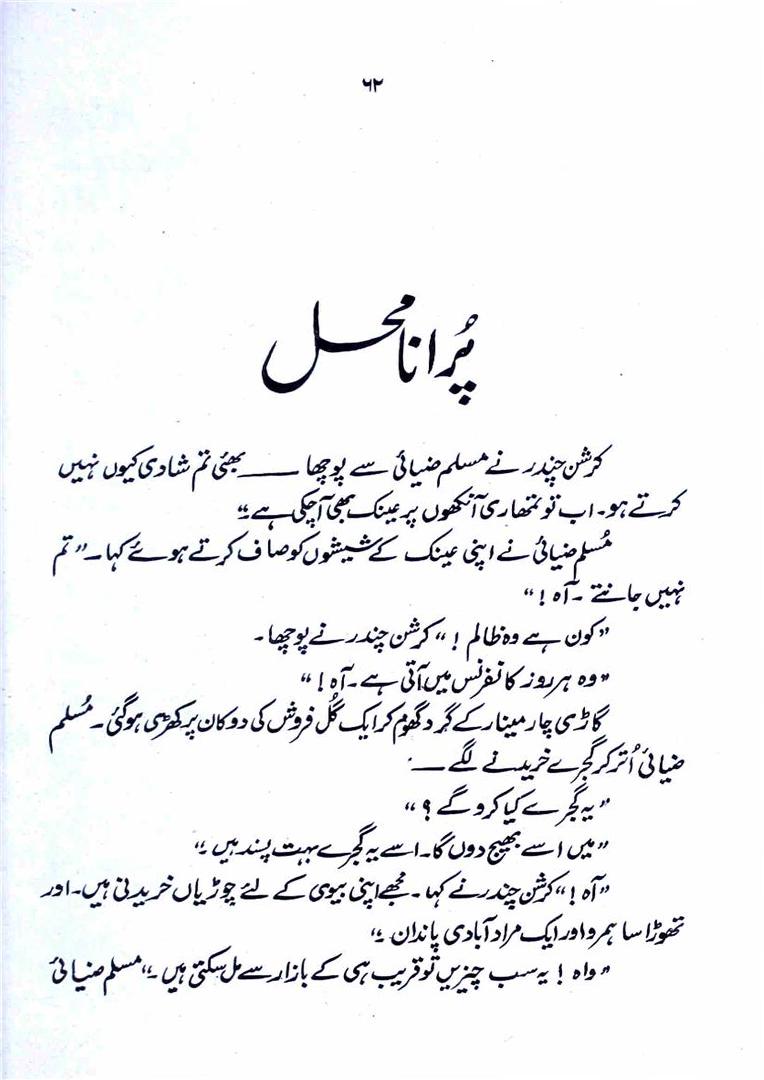 ۶۲
پُرانا محل
کرشن چندر نے مسلم ضیائی سے پوچھا ـــــ بھئی تم شادی کیوں نہیں
کرتے ہو۔ اب تو تمھاری آنکھوں پر عینک بھی آچکی ہے۔“
مُسلم ضیائی نے اپنی عینک کے شیشوں کو صاف کرتے ہوئے کہا۔ ”تم
نہیں جانتے۔ آہ !“
”کون ہے وہ ظالم !“ کرشن چندر نے پوچھا۔
”وہ ہر روز کانفرنس میں آتی ہے۔ آہ !“
گاڑی چار مینار کے گرد گھوم کر ایک گُل فروش کی دوکان پر کھڑی ہوگئی۔ مُسلم
ضیائی اُتر کر گجرے خریدنے لگے ـــــ
”یہ گجرے کیا کرو گے ؟“
”میں اسے بھیج دوں گا۔ اسے یہ گجرے بہت پسند ہیں۔“
”آہ !“ کرشن چندر نے کہا۔ مجھے اپنی بیوی کے لئے چوڑیاں خریدنی ہیں۔ اور
تھوڑا سا ہمرو اور ایک مراد آبادی پاندان۔“
”واہ ! یہ سب چیزیں تو قریب ہی کے بازار سے مل سکتی ہیں۔“ مسلم ضیائی